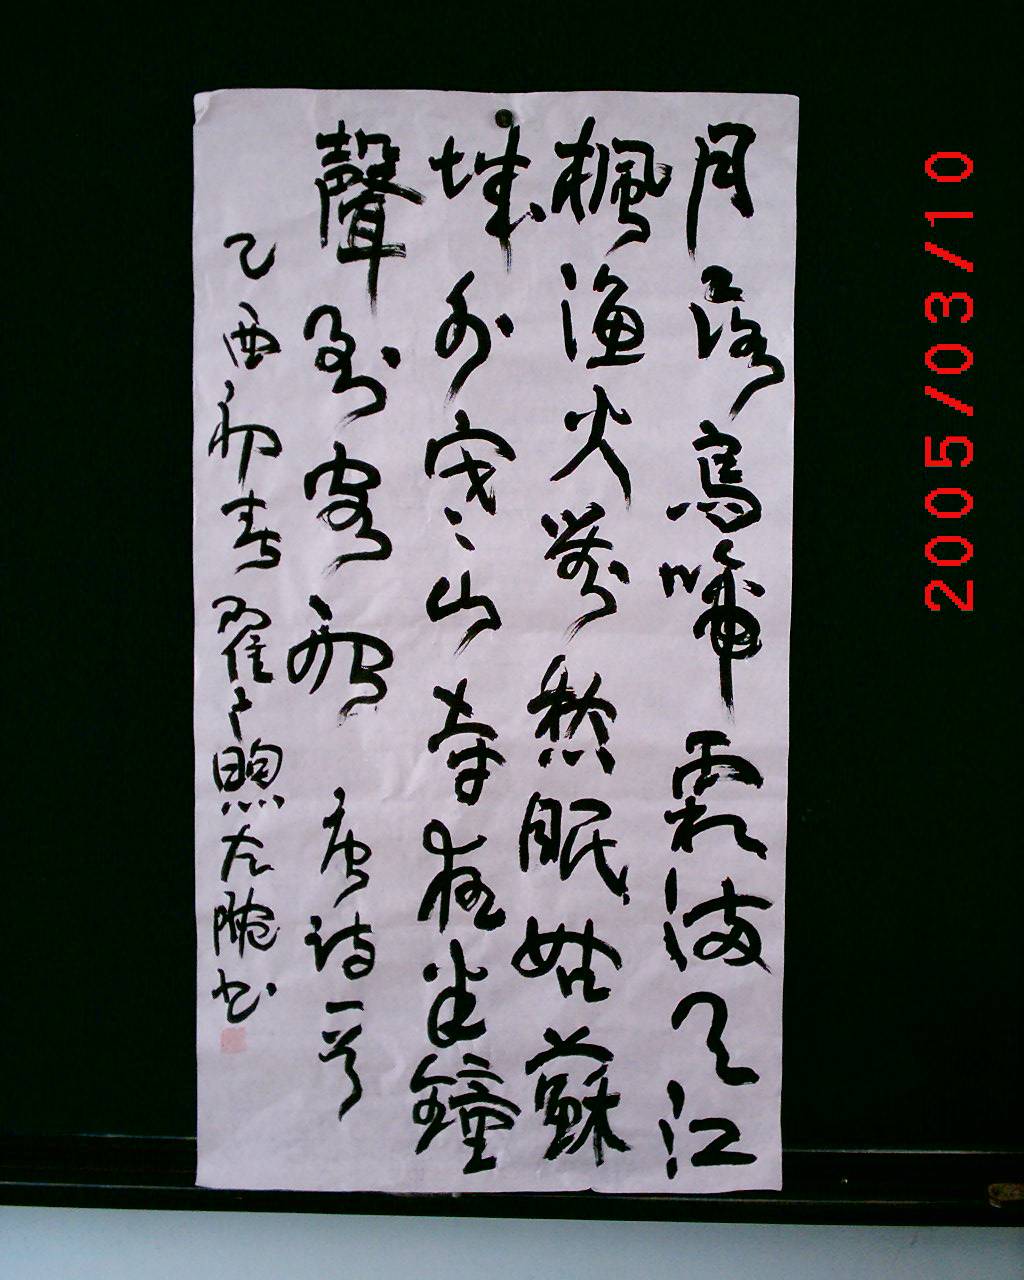 月落烏啼霜滿天江
楓漁火對愁眠姑蘇
城外寒山寺夜半鐘
聲到客船 唐詩一首
乙酉初春翟煦左腕书
2005/03/10